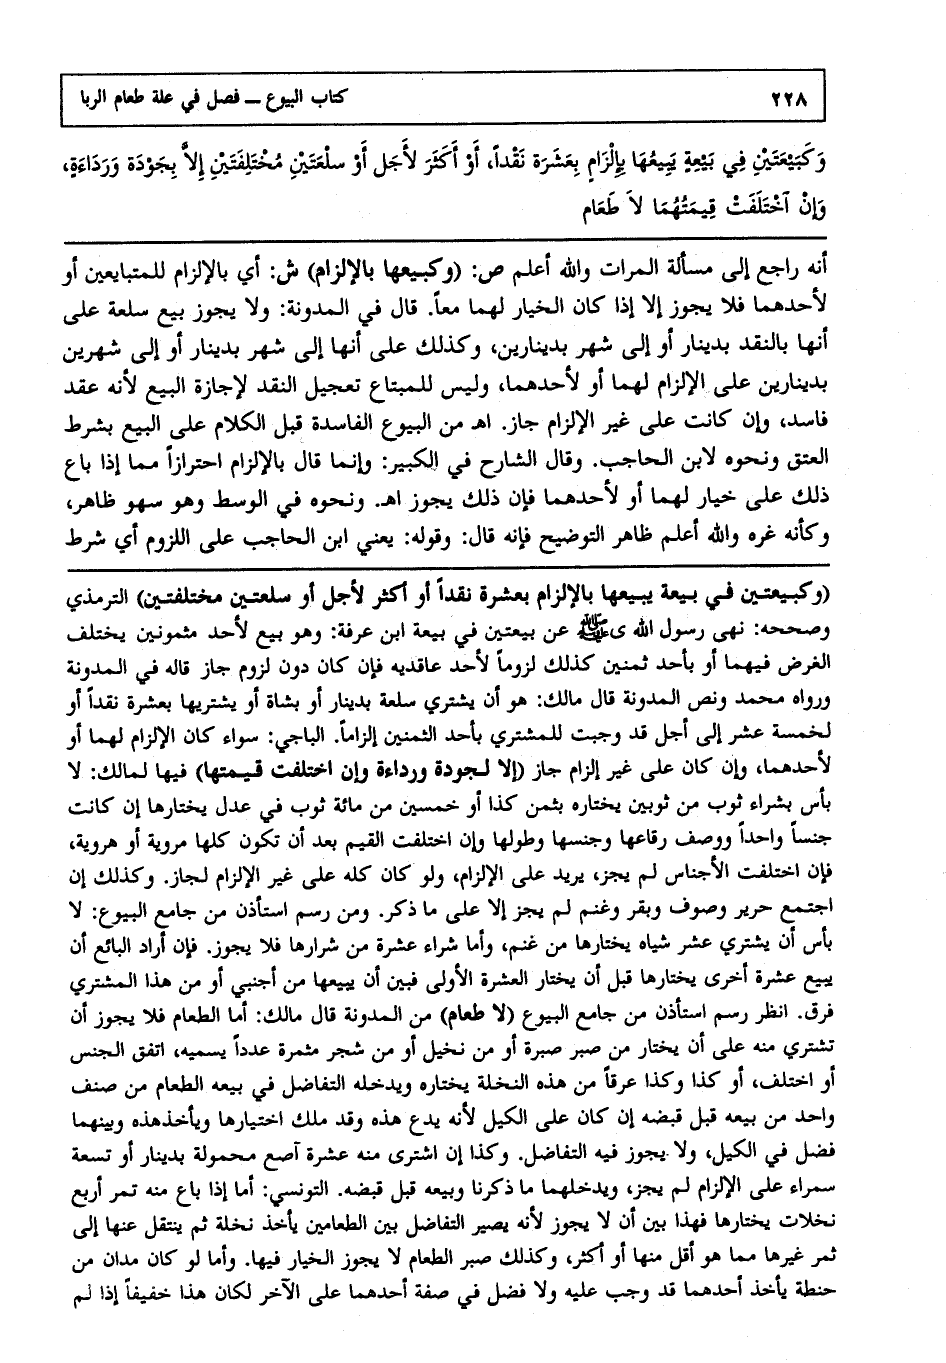 ٢٢٨ كتاب البيوع ـ فصل في علة طعام الربا
وَكَبَيْعَتَيْنِ فِي بَيْعَةٍ يَبِيعُهَا بِإِلْزَامٍ بِعَشَرَة نَقْداً، أَوْ أَكْثَرَ لأَجَل أَوْ سلْعَتَيْنِ مُخْتَلِفَتَيْنِ إِلاَّ بِجَوْدَة وَرَدَاءَةٍ،
وَإِنْ آخْتَلَفَتْ قِيمَتُهُمَا لاَ طَعَام
أنه راجع إلى مسألة المرات والله أعلم ص: (وكبيعها بالإلزام) ش: أي بالإلزام للمتبايعين أو
لأحدهما فلا يجوز إلا إذا كان الخيار لهما معاً. قال في المدونة: ولا يجوز بيع سلعة على
أنها بالنقد بدينار أو إلى شهر بدينارين، وكذلك على أنها إلى شهر بدينار أو إلى شهرين
بدينارين على الإلزام لهما أو لأحدهما، وليس للمبتاع تعجيل النقد لإجازة البيع لأنه عقد
فاسد، وإن كانت على غير الإلزام جاز. اهـ من البيوع الفاسدة قبل الكلام على البيع بشرط
العتق ونحوه لابن الحاجب. وقال الشارح في الكبير: وإنما قال بالإلزام احترازاً مما إذا باع
ذلك على خيار لهما أو لأحدهما فإن ذلك يجوز اهـ. ونحوه في الوسط وهو سهو ظاهر،
وكأنه غره والله أعلم ظاهر التوضيح فإنه قال: وقوله: يعني ابن الحاجب على اللزوم أي شرط
(وكبيعتين في بيعة يبيعها بالإلزام بعشرة نقداً أو أكثر لأجل أو سلعتين مختلفتين) الترمذي
وصححه: نهى رسول الله ى ﷺ عن بيعتين في بيعة ابن عرفة: وهو بيع لأحد مثمونين يختلف
الغرض فيهما أو بأحد ثمنين كذلك لزوماً لأحد عاقديه فإن كان دون لزوم جاز قاله في المدونة
ورواه محمد ونص المدونة قال مالك: هو أن يشتري سلعة بدينار أو بشاة أو يشتريها بعشرة نقداً أو
لخمسة عشر إلى أجل قد وجبت للمشتري بأحد الثمنين إلزاماً. الباجي: سواء كان الإلزام لهما أو
لأحدهما، وإن كان على غير إلزام جاز (إلا لجودة ورداءة وإن اختلفت قيمتها) فيها لمالك: لا
بأس بشراء ثوب من ثوبين يختاره بثمن كذا أو خمسين من مائة ثوب في عدل يختارها إن كانت
جنساً واحداً ووصف رقاعها وجنسها وطولها وإن اختلفت القيم بعد أن تكون كلها مروية أو هروية،
فإن اختلفت الأجناس لم يجز، يريد على الإلزام، ولو كان كله على غير الإلزام لجاز. وكذلك إن
اجتمع حرير وصوف وبقر وغنم لم يجز إلا على ما ذكر. ومن رسم استأذن من جامع البيوع: لا
بأس أن يشتري عشر شياه يختارها من غنم، وأما شراء عشرة من شرارها فلا يجوز. فإن أراد البائع أن
يبيع عشرة أخرى يختارها قبل أن يختار العشرة الأولى فبين أن يبيعها من أجنبي أو من هذا المشتري
فرق. انظر رسم استأذن من جامع البيوع (لا طعام) من المدونة قال مالك: أما الطعام فلا يجوز أن
تشتري منه على أن يختار من صبر صبرة أو من نخيل أو من شجر مثمرة عدداً يسميه، اتفق الجنس
أو اختلف، أو كذا وكذا عرقاً من هذه النخلة يختاره ويدخله التفاضل في بيعه الطعام من صنف
واحد من بيعه قبل قبضه إن كان على الكيل لأنه يدع هذه وقد ملك اختيارها ويأخذهذه وبينهما
فضل في الكيل، ولا يجوز فيه التفاضل. وكذا إن اشترى منه عشرة آصع محمولة بدينار أو تسعة
سمراء على الإلزام لم يجز، ويدخلهما ما ذكرنا وبيعه قبل قبضه. التونسي: أما إذا باع منه تمر أربع
نخلات يختارها فهذا بين أن لا يجوز لأنه يصير التفاضل بين الطعامين يأخذ نخلة ثم ينتقل عنها إلى
ثمر غيرها مما هو أقل منها أو أكثر، وكذلك صبر الطعام لا يجوز الخيار فيها. وأما لو كان مدان من
حنطة يأخذ أحدهما قد وجب عليه ولا فضل في صفة أحدهما على الآخر لكان هذا خفيفاً إذا لم